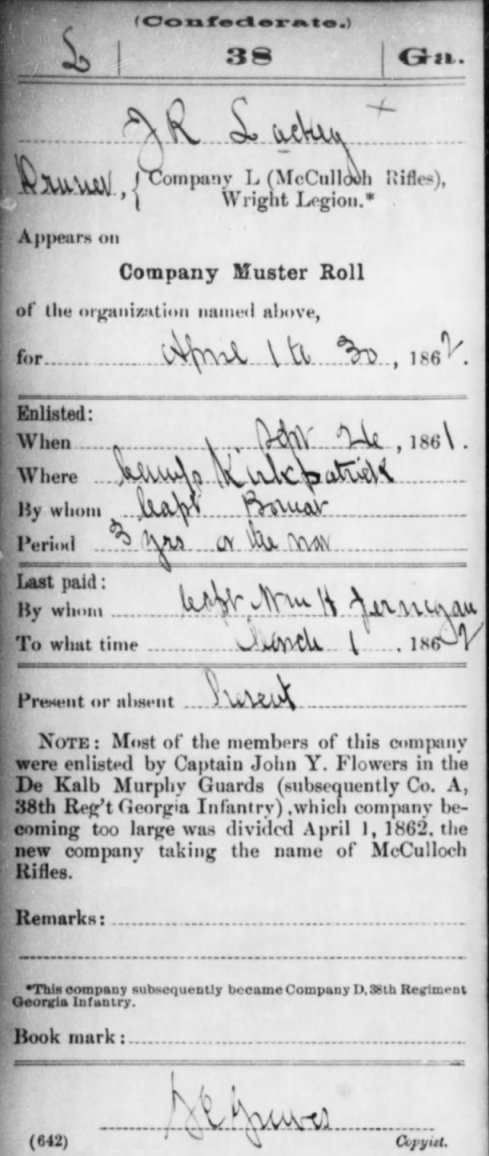 (Confederate.)
L | 38 | Ga.
J R Lackey ×
Company L (McCulloch Rifles),
Wright Legion.*
Appears on
Company Muster Roll
of the organization named above,
for April 1 to 30, 1862.
Enlisted:
When Sept 26, 1861.
Where Camp Kirkpatrick
By whom Capt Bomar
Period 3 yrs or the war
Last paid:
By whom Capt Wm H Jernegan
To what time March 1, 1862
Present or absent Present
NOTE: Most of the members of this company
were enlisted by Captain John Y. Flowers in the
De Kalb Murphy Guards (subsequently Co. A,
38th Reg't Georgia Infantry), which company be-
coming too large was divided April 1, 1862, the
new company taking the name of McCulloch
Rifles.
Remarks:
*This company subsequently became Company D, 38th Regiment
Georgia Infantry.
Book mark:
Graves
(642) Copyist.